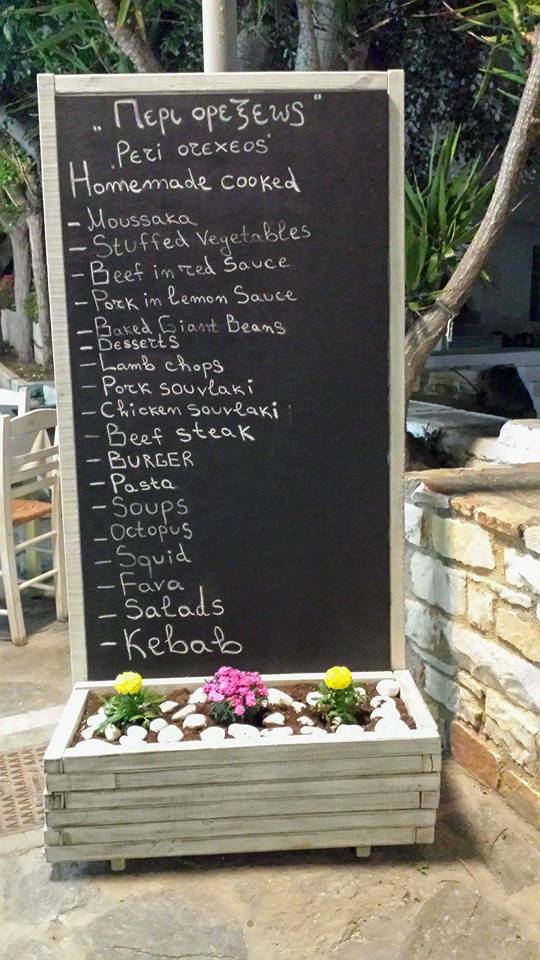 „Περι ορεξεως"
Peri orexeos
Homemade cooked
- Moussaka
- Stuffed Vegetables
- Beef in red Sauce
- Pork in lemon Sauce
- Baked Giant Beans
- Desserts
- Lamb chops
- Pork souvlaki
- Chicken souvlaki
- Beef steak
- BURGER
- Pasta
- Soups
- Octopus
- Squid
- Fava
- Salads
- Kebab